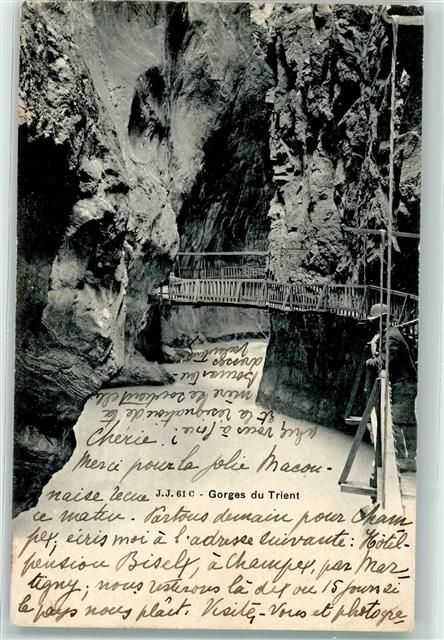 Chérie !
Merci pour la jolie Macon-
naise reçue
J.J. 61 C - Gorges du Trient
ce matin. Partons demain pour Cham
pex, écris moi à l'adresse suivante: Hôtel-
pension Biselx, à Champex, par Mar-
tigny; nous resterons là dix ou 15 jours si
le pays nous plâit. Visitez-Vous et photogra-
phiez Vous à
et la
de la